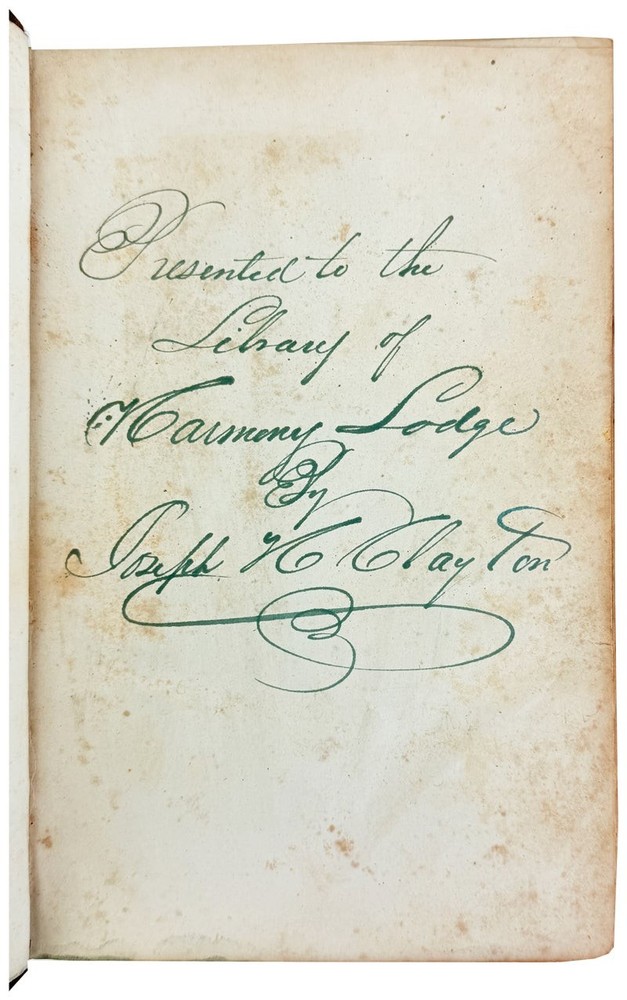 Presented to the
Library of
Harmony Lodge
By
Joseph H Clayton